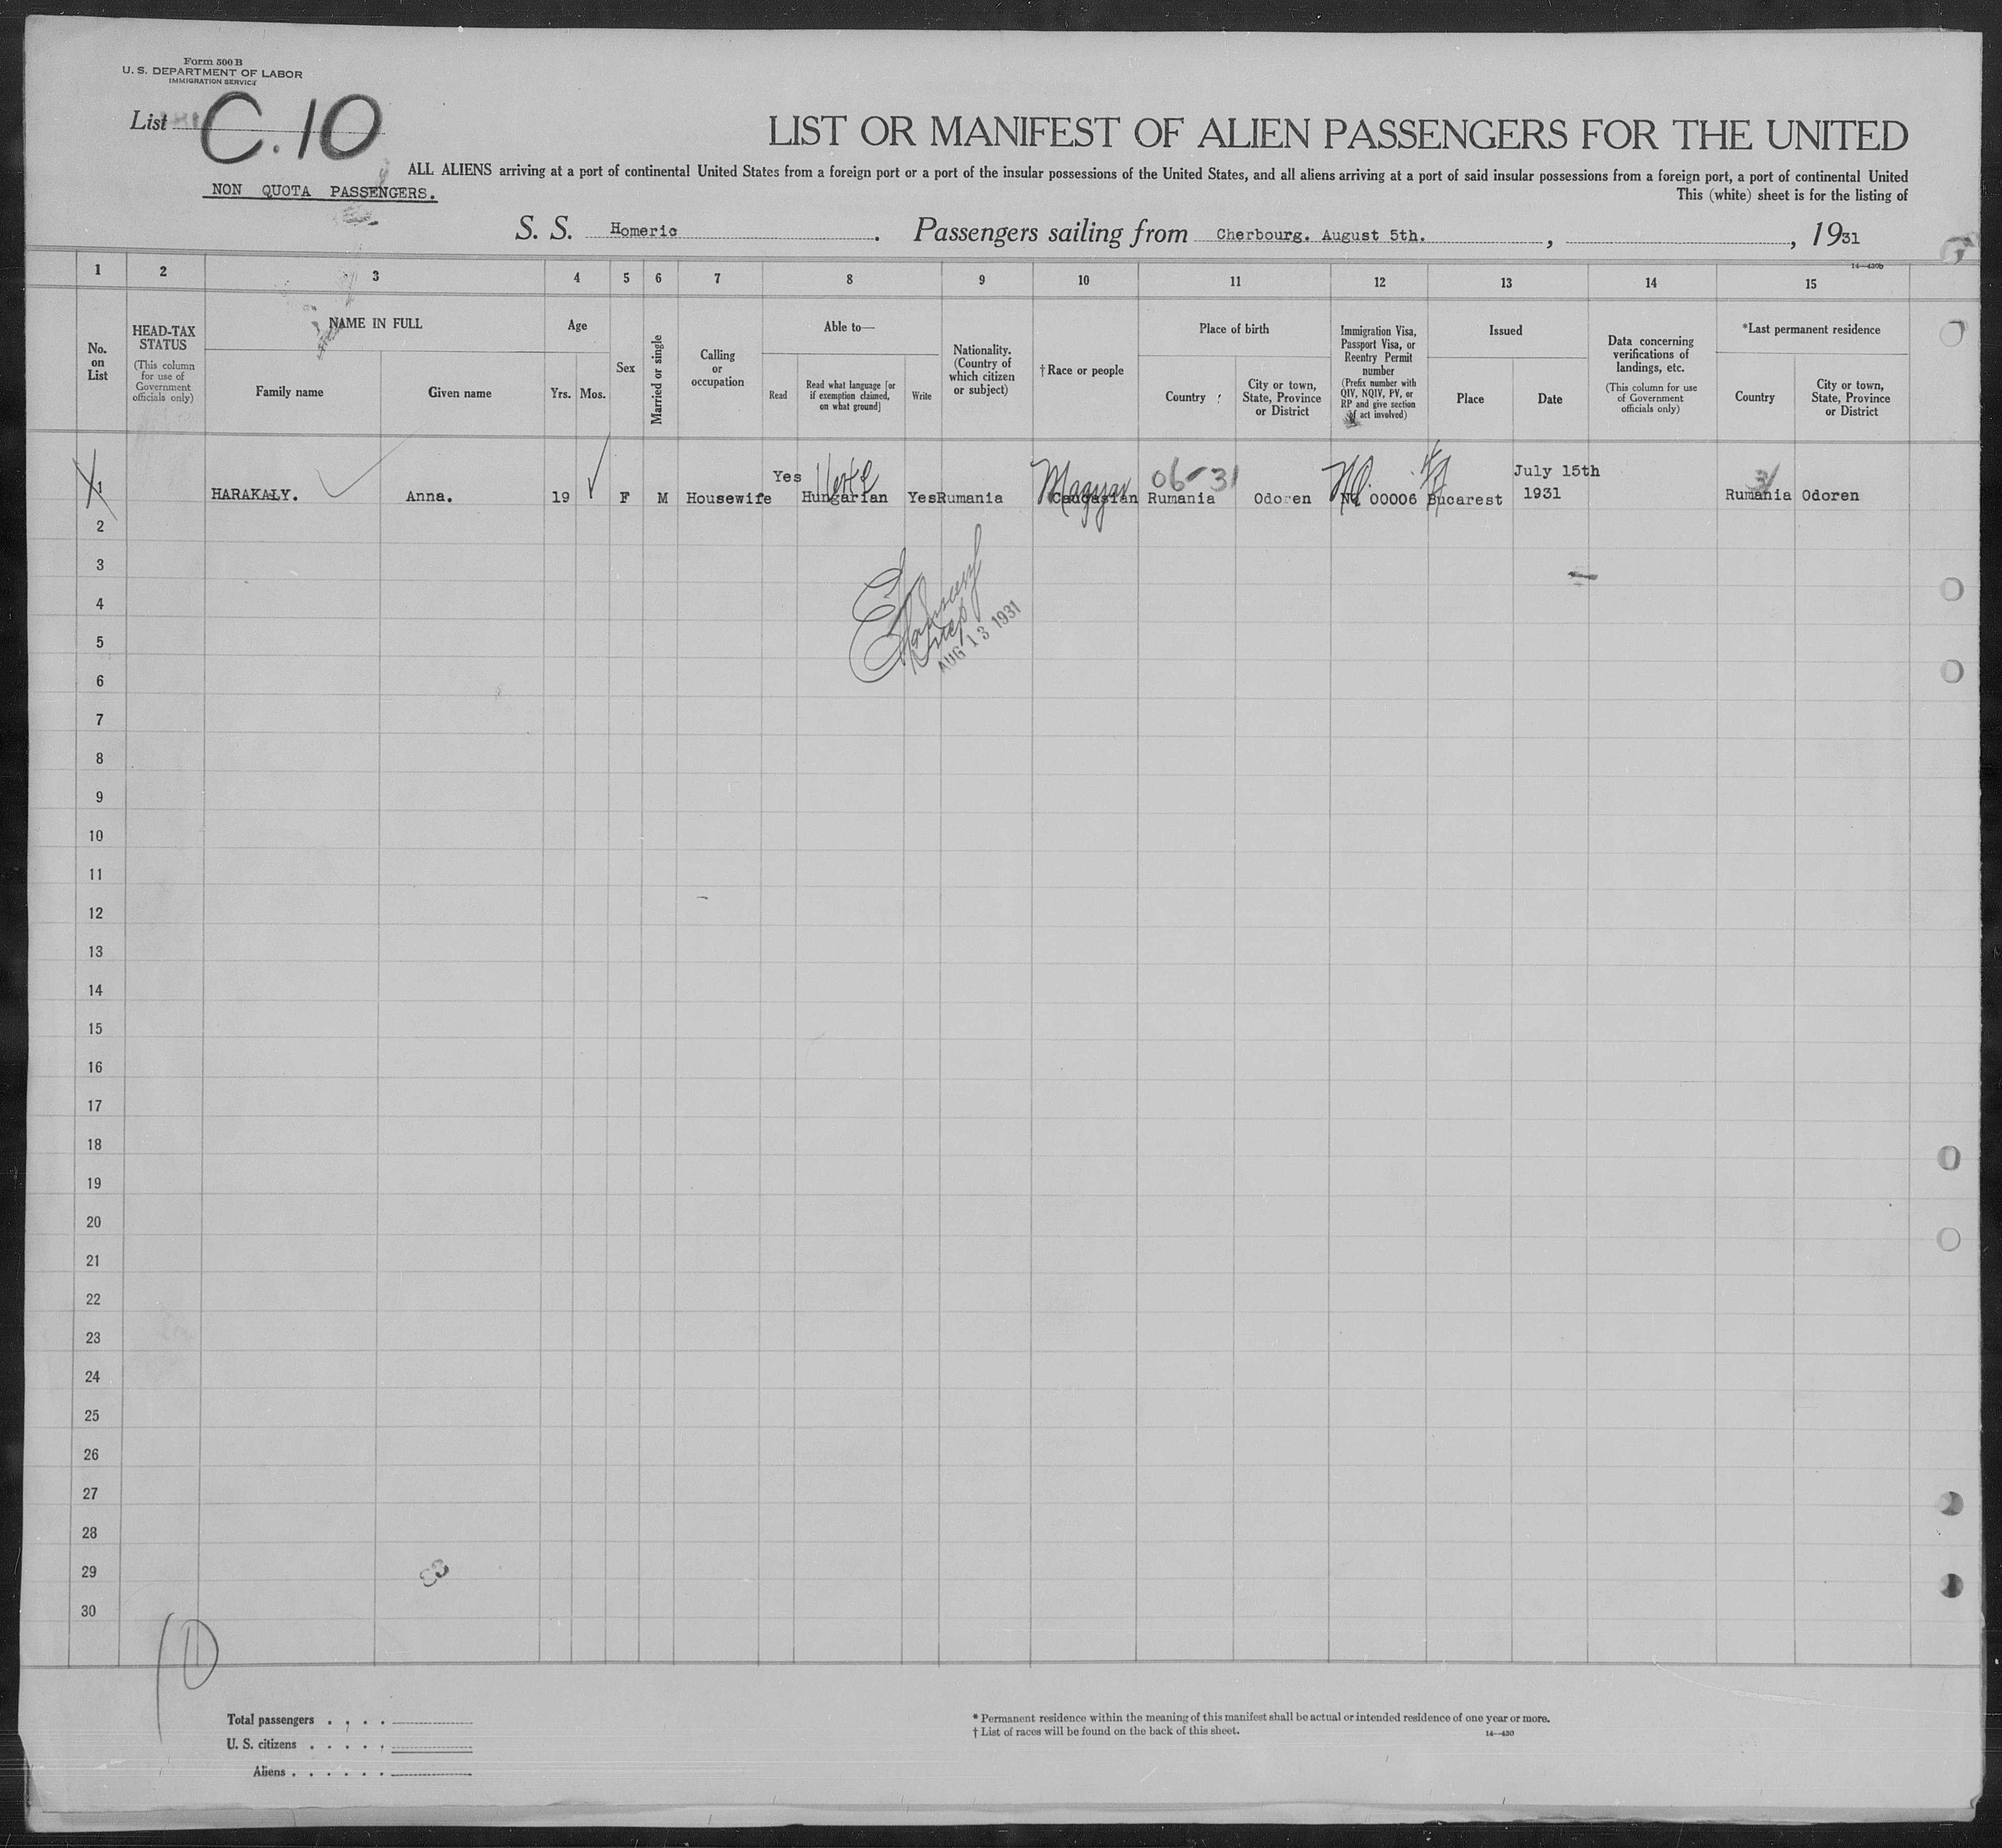 Form 500 B
U. S. DEPARTMENT OF LABOR
IMMIGRATION SERVICE
List C.10
LIST OR MANIFEST OF ALIEN PASSENGERS FOR THE UNITED
ALL ALIENS arriving at a port of continental United States from a foreign port or a port of the insular possessions of the United States, and all aliens arriving at a port of said insular possessions from a foreign port, a port of continental United
NON QUOTA PASSENGERS.
This (white) sheet is for the listing of
S. S. Homeric. Passengers sailing from Cherbourg. August 5th. , , 1931
14—430b
1 2 3 4 5 6 7 8 9 10 11 12 13 14 15
No. on List
HEAD-TAX STATUS
(This column for use of Government officials only)
NAME IN FULL
Family name
Given name
Age
Yrs. Mos.
Sex
Married or single
Calling or occupation
Able to—
Read
Read what language [or if exemption claimed, on what ground]
Write
Nationality. (Country of which citizen or subject)
† Race or people
Place of birth
Country
City or town, State, Province or District
Immigration Visa, Passport Visa, or Reentry Permit number
(Prefix number with QIV, NQIV, PV, or RP and give section of act involved)
Issued
Place
Date
Data concerning verifications of landings, etc.
(This column for use of Government officials only)
*Last permanent residence
Country
City or town, State, Province or District
06-31
Yes July 15th
1 HARAKALY. Anna. 19 F M Housewife Hungarian Yes Rumania Caucasian Magyar Rumania Odoren NQ 00006 Bucarest 1931 Rumania Odoren
2
3
4
5
AUG 13 1931
6
7
8
9
10
11
12
13
14
15
16
17
18
19
20
21
22
23
24
25
26
27
28
29
30
Total passengers . . . .
U. S. citizens . . . . .
Aliens . . . . . .
* Permanent residence within the meaning of this manifest shall be actual or intended residence of one year or more.
† List of races will be found on the back of this sheet.
14—430